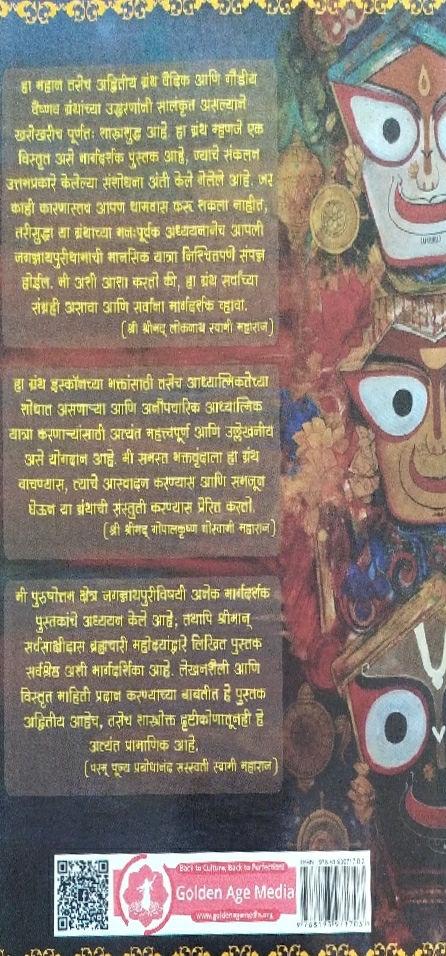 हा महान तसेच अद्वितीय ग्रंथ वैदिक आणि गौडीय
वैष्णव ग्रंथांच्या उद्धरणांनी सालंकृत असल्याने
खरोखरीच पूर्णतः शास्त्रशुद्ध आहे. हा ग्रंथ म्हणजे एक
विस्तृत असे मार्गदर्शक पुस्तक आहे, ज्याचे संकलन
उत्तमप्रकारे केलेल्या संशोधना अंती केले गेलेले आहे. जर
काही कारणास्तव आपण धामवास करू शकला नाहीत,
तरीसुद्धा या ग्रंथाच्या मनःपूर्वक अध्ययनानेच आपली
जगन्नाथपुरीधामाची मानसिक यात्रा निश्चितपणे संपन्न
होईल. मी अशी आशा करतो की, हा ग्रंथ सर्वांच्या
संग्रही असावा आणि सर्वांना मार्गदर्शक व्हावा.
(श्री श्रीमद् लोकनाथ स्वामी महाराज)
हा ग्रंथ इस्कॉनच्या भक्तांसाठी तसेच आध्यात्मिकतेच्या
शोधात असणाऱ्या आणि अनौपचारिक आध्यात्मिक
यात्रा करणाऱ्यांसाठी अत्यंत महत्त्वपूर्ण आणि उल्लेखनीय
असे योगदान आहे. मी समस्त भक्तवृंदाला हा ग्रंथ
वाचण्यास, त्याचे आस्वादन करण्यास आणि समजून
घेऊन या ग्रंथाची संस्तुती करण्यास प्रेरित करतो.
(श्री श्रीमद् गोपालकृष्ण गोस्वामी महाराज)
मी पुरुषोत्तम क्षेत्र जगन्नाथपुरीविषयी अनेक मार्गदर्शक
पुस्तकांचे अध्ययन केले आहे; तथापि श्रीमान्
सर्वसाक्षीदास ब्रह्मचारी महोदयांद्वारे लिखित पुस्तक
सर्वश्रेष्ठ अशी मार्गदर्शिका आहे. लेखनशैली आणि
विस्तृत माहिती प्रदान करण्याच्या बाबतीत हे पुस्तक
अद्वितीय आहेच, तसेच शास्त्रोक्त दृष्टीकोणातूनही हे
अत्यंत प्रामाणिक आहे.
(परम् पूज्य प्रबोधानंद सरस्वती स्वामी महाराज)
Back to Culture, Back to Perfection!
Golden Age Media
www.goldenagemedia.org